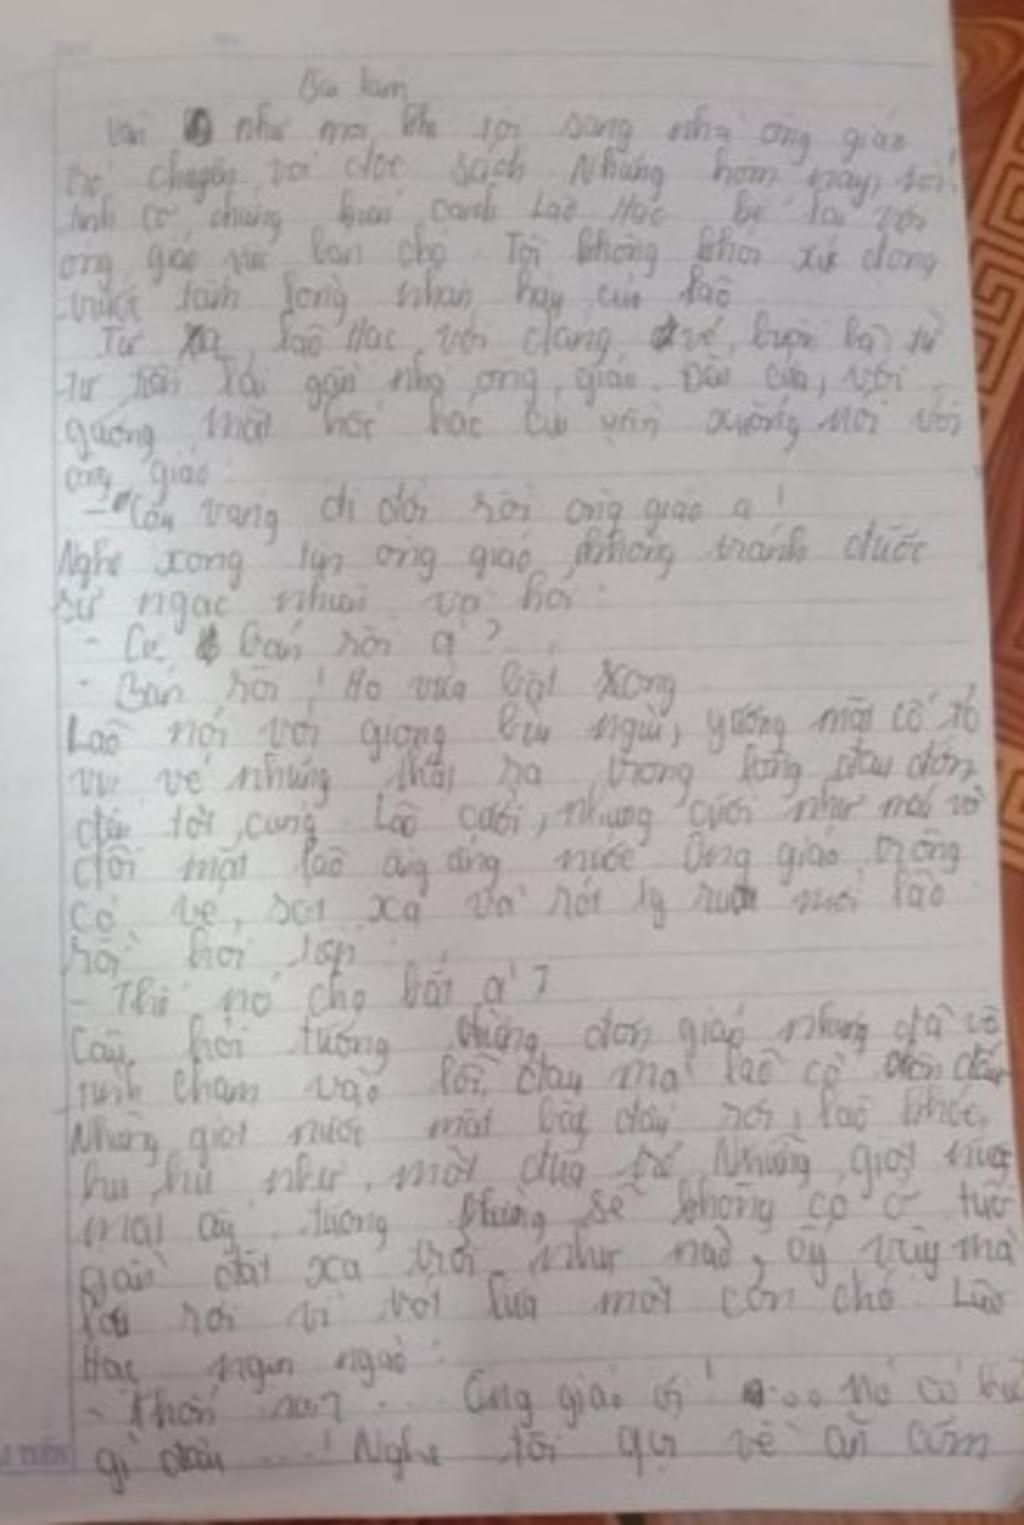 Bài làm
Vẫn như mọi khi tôi sang nhà ông giáo
trò chuyện và đọc sách Nhưng hôm nay, tôi
tình cờ chứng kiến cảnh Lão Hạc kể lại với
ông giáo việc bán chó Tôi không khỏi xúc động
trước tấm lòng nhân hậu của lão
Từ xa, lão Hạc với dáng vẻ buồn bã từ
từ tiến lại gần nhà ông giáo. Đến cửa, với
gương mặt hốc hác lão xuống nói với
ông giáo
- Cậu vàng đi đời rồi ông giáo ạ!
Nghe xong ông giáo không tránh được
sự ngạc nhiên và hỏi:
- Cụ bán rồi à?
- Bán rồi! Họ vừa bắt xong
Lão nói với giọng buồn ngủi, gương mặt cố tỏ
vui vẻ nhưng thật ra trong lòng đau đớn
đến tột cùng Lão cười, nhưng cười như mếu và
đôi mắt lão ầng ậng nước Ông giáo trông
có vẻ xót xa và rất với lão
rồi hỏi tiếp
- Thế nó cho bắt à?
Câu hỏi tưởng chừng đơn giản nhưng đã vô
tình chạm vào nỗi đau mà lão cố
Những giọt nước mắt bắt đầu rơi, lão khóc
hu hu như một đứa trẻ Những giọt nước
mắt ấy tưởng chừng sẽ không có ở tuổi
gần đất xa trời như nào, ấy vậy mà
lại rơi vì lừa một con chó Lão
Hạc nghẹn ngào:
- Khốn nạn... Ông giáo ơi! ... Nó có biết
gì đâu ...! Nghe tôi gọi về ăn cơm